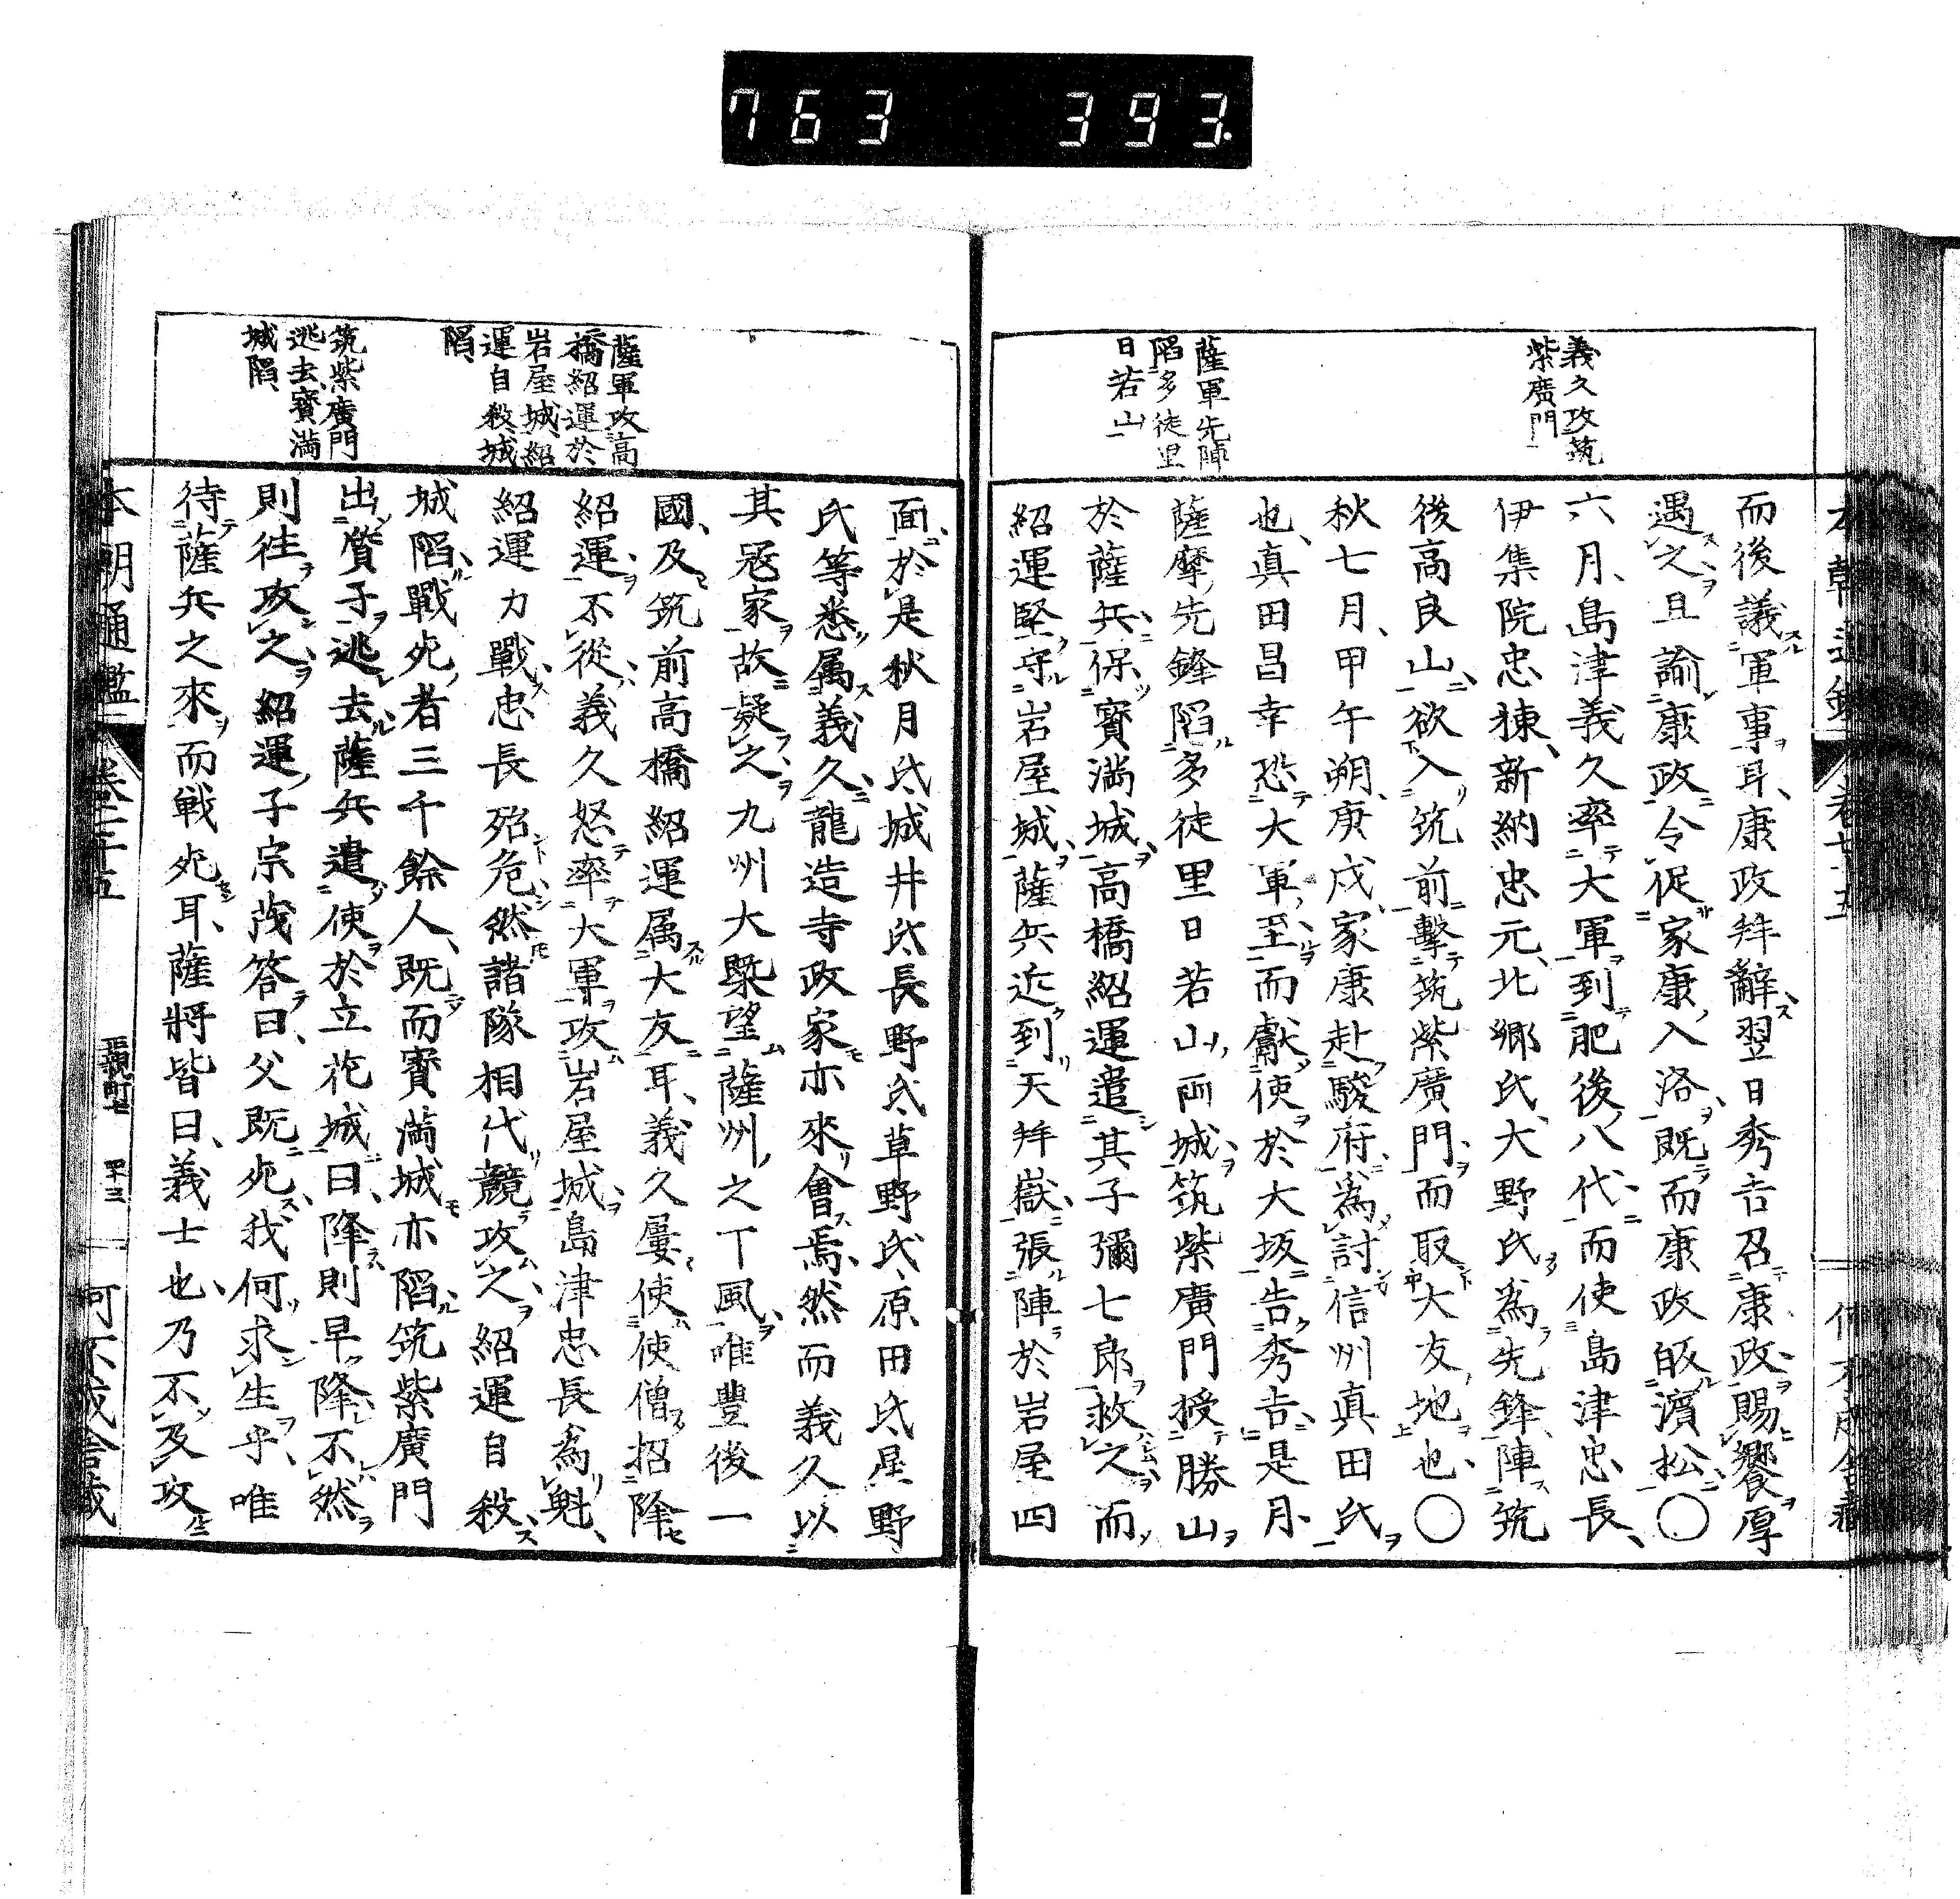 763 393
義久攻筑
紫廣門
薩軍先陣
陷多徒里
日若山
而後議軍事耳康政拜辭翌日秀吉召康政賜饗厚
遇之且諭康政令促家康入洛既而康政皈濱松〇
六月島津義久率大軍到肥後八代而使島津忠長
伊集院忠棟新納忠元北鄉氏大野氏為先鋒陣筑
後高良山欲入筑前擊筑紫廣門而取大友地也〇
秋七月甲午朔庚戌家康赴駿府為討信州真田氏
也真田昌幸恐大軍至而獻使於大坂告秀吉是月
薩摩先鋒陷多徒里日若山兩城筑紫廣門授勝山
於薩兵保寶滿城高橋紹運遣其子彌七郎救之而
紹運堅守岩屋城薩兵近到天拜嶽張陣於岩屋四
薩軍攻高
橋紹運於
岩屋城紹
運自殺城
陷
筑紫廣門
逃去寶滿
城陷
面於是秋月氏城井氏長野氏草野氏原田氏星野
氏等悉属義久龍造寺政家亦來會焉然而義久以
其冦家故疑之九州大槩望薩州之下風唯豐後一
國及筑前高橋紹運属大友耳義久屢使使僧招降
紹運不從義久怒率大軍攻岩屋城島津忠長為魁
紹運力戰忠長殆危然諸隊相代競攻之紹運自殺
城陷戰死者三千餘人既而寶滿城亦陷筑紫廣門
出質子逃去薩兵遣使於立花城曰降則早降不然
則往攻之紹運子宗茂答曰父既死我何求生乎唯
待薩兵之來而戰死耳薩將皆曰義士也乃不及攻
本朝通鑑 卷七十五 正親町七 四十三 何不成舍藏